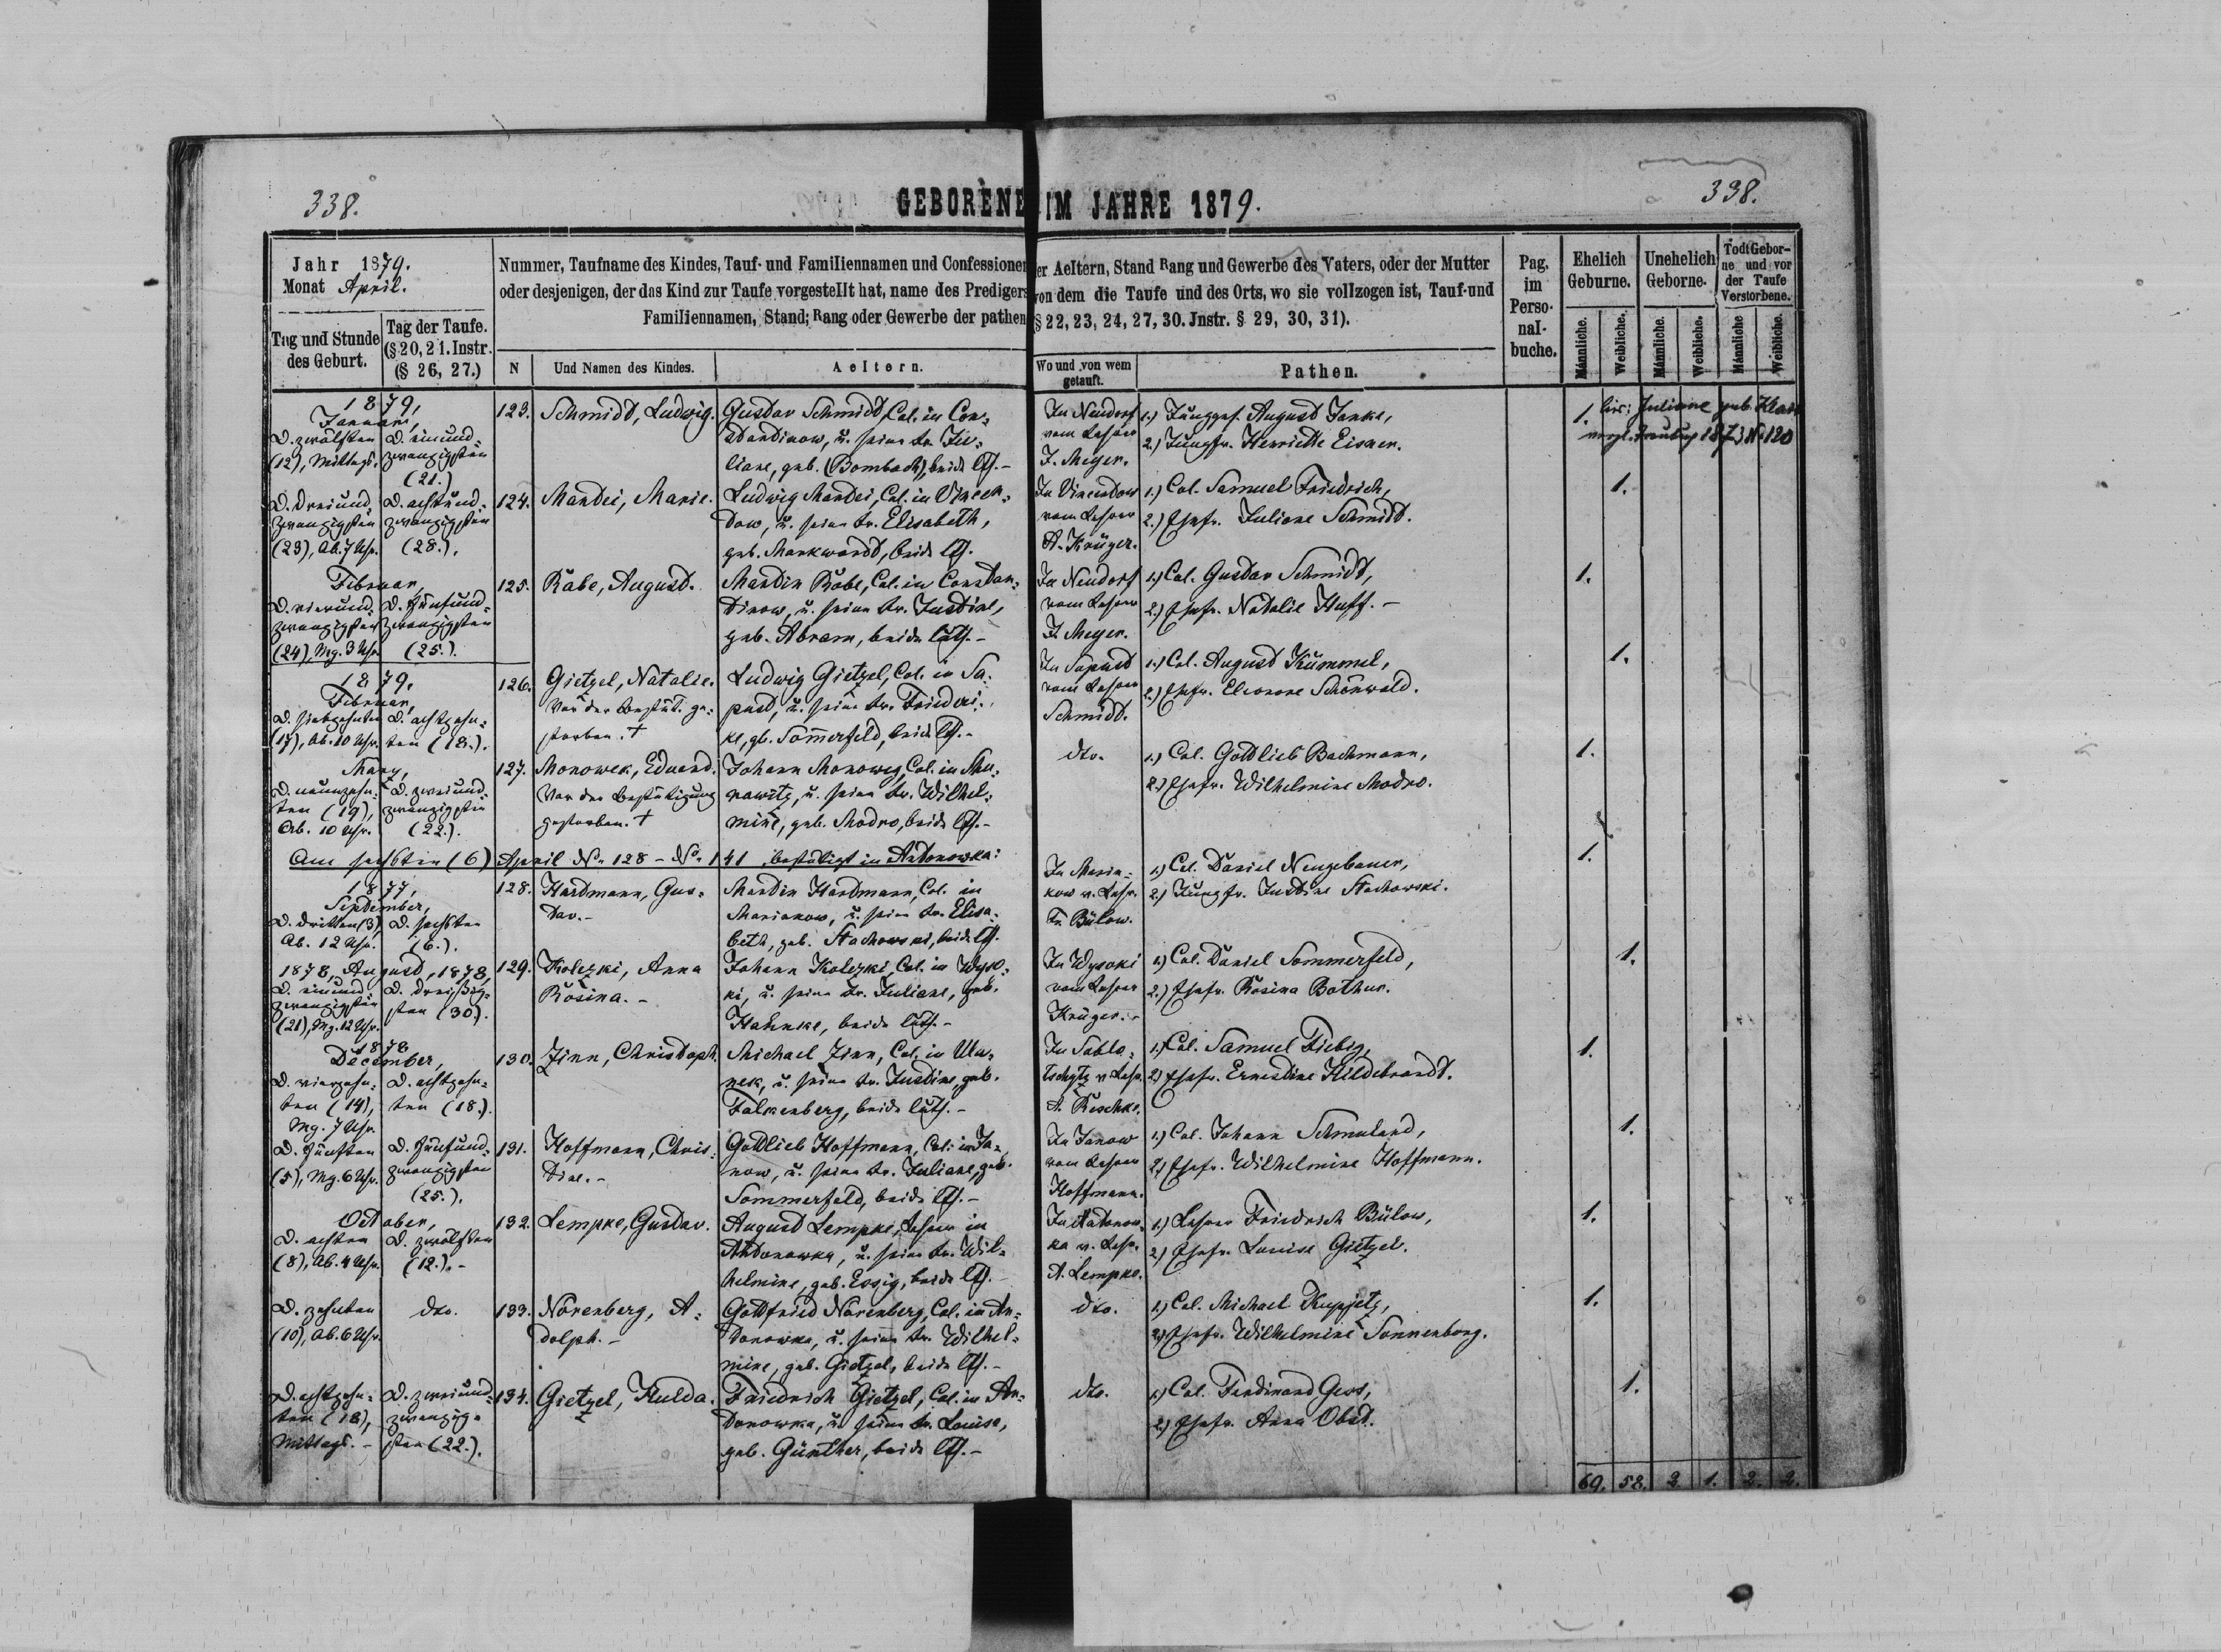 338.
GEBORENE IM JAHRE 1879.
338.
Jahr 1879.
Monat April.
Tag und Stunde
des Geburt.
Tag der Taufe.
(§ 20, 21. Instr.
(§ 26, 27.)
Nummer, Taufname des Kindes, Tauf- und Familiennamen und Confessionen der Aeltern, Stand Rang und Gewerbe des Vaters, oder der Mutter
oder desjenigen, der das Kind zur Taufe vorgestellt hat, name des Predigers von dem die Taufe und des Orts, wo sie vollzogen ist, Tauf-und
Familiennamen, Stand; Rang oder Gewerbe der pathen (§ 22, 23, 24, 27, 30. Jnstr. § 29, 30, 31).
N
Und Namen des Kindes.
Aeltern.
Wo und von wem
getauft.
Pathen.
Pag.
im
Perso-
nal-
buche.
Ehelich
Geburne.
Unehelich
Geborne.
Todt Gebor-
ne und vor
der Taufe
Verstorbene.
Männliche.
Weibliche.
Männliche.
Weibliche.
Männliche
Weibliche.
1879,
Januar,
D. zwölften
(12), Mittags.
D. einund-
zwanzigsten
(21.)
123.
Schmidt, Ludwig.
Gustav Schmidt, Col. in Con-
stantinow, u. seine Fr. Ju-
liane, geb. (Bombach), beide lth.-
In Neudorf
vom Lehrer
J. Meyer.
1.) Junggef. August Janke,
2.) Jungfr. Henriette Eisner.
1.
hier: Juliane geb. Klatt
vergl. Trauung 187 No 120
D. dreiund-
zwanzigsten
(23), Ab. 7 Uhr.
D. achtund-
zwanzigsten
(28.).
124.
Mandei, Marie.
Ludwig Mandei, Col. in Vincen-
tow, u. seine Fr. Elisabeth,
geb. Markwardt, beide lth.
In Vincentow
vom Lehrer
A. Krüger.
1.) Col. Samuel Friedrich,
2.) Ehefr. Juliane Schmidt.
1.
Februar,
D. vierund-
zwanzigsten
(24), Mg. 3 Uhr.
D. fünfund-
zwanzigsten
(25.).
125.
Rabe, August.
Martin Rabe, Col. in Constan-
tinow, u. seine Fr. Justine,
geb. Abram, beide luth.-
In Neudorf
vom Lehrer
J. Meyer.
1.) Col. Gustav Schmidt,
2.) Ehefr. Natalie Huff.-
1.
1879.
Februar,
D. siebzehnten
(17), Ab. 10 Uhr.
D. achtzehn-
ten (18.).
126.
Gietzel, Natalie.
Vor der Bestät. ge-
storben. †
Ludwig Gietzel, Col. in Sa-
pust, u. seine Fr. Friederi-
ke, gb. Sommerfeld, beide lth.-
In Sapust
vom Lehrer
Schmidt.
1.) Col. August Kümmel,
2.) Ehefr. Eleonore Schönwald.
1.
März,
D. neunzehn-
ten (19),
Ab. 10 Uhr.
D. zweiund-
zwanzigsten
(22.).
127.
Monowek, Eduard.
Vor der Bestätigung
gestorben. †
Johann Monoweg, Col. in Mu-
rawitz, u. seine Fr. Wilhel-
mine, geb. Modro, beide lth.-
dto.
1.) Col. Gottlieb Bachmann,
2.) Ehefr. Wilhelmine Modro.
1.
Am sechsten (6) April No 128 - No 141 bestätigt in Antonowka:
1877,
September,
D. dritten (3)
Ab. 12 Uhr.
D. sechsten
(6.).
128.
Hardmann, Gus-
tav.-
Martin Hardmann, Col. in
Marianow, u. seine Fr. Elisa-
beth, geb. Stachowski, beide lth.
In Maria-
now v. Lehr.
Fr. Bülow.
1.) Col. Daniel Neugebauer,
2.) Jungfr. Justine Stachowski.
1.
1878, August, 1878,
D. einund-
zwanzigsten
(21), Mg. 12 Uhr.
D. dreißig-
sten (30).
129.
Kolezki, Anna
Rosina.-
Johann Kolezki, Col. in Wyso-
ki, u. seine Fr. Juliane, geb.
Hahnke, beide luth.-
In Wysoki
vom Lehrer
Krüger.-
1.) Col. Daniel Sommerfeld,
2.) Ehefr. Rosina Bothur.
1.
1878
December,
D. vierzehn-
ten (14),
Mg. 7 Uhr.
D. achtzehn-
ten (18.).
130.
Zinn, Christoph.
Michael Zinn, Col. in Ula-
nek, u. seine Fr. Justine, geb.
Falkenberg, beide luth.-
In Sablo-
tschytz v. Lehr.
A. Reschke.
1.) Col. Samuel Fiebig,
2.) Ehefr. Ernestine Hildebrandt.
1.
D. fünften
(5), Mg. 6 Uhr.
D. fünfund-
zwanzigsten
(25.).
131.
Hoffmann, Chris-
tine.-
Gottlieb Hoffmann, Col. in Ja-
now, u. seine Fr. Juliane, geb.
Sommerfeld, beide lth.-
In Janow
vom Lehrer
Hoffmann.
1.) Col. Johann Schmuland,
2.) Ehefr. Wilhelmine Hoffmann.
1.
October,
D. achten
(8), Ab. 4 Uhr.
D. zwölften
(12.).-
132.
Lempke, Gustav.
August Lempke, Lehrer in
Antonowka, u. seine Fr. Wil-
helmine, geb. Essig, beide lth.-
In Antonow-
ka v. Lehr.
A. Lempke.
1.) Lehrer Friedrich Bülow,
2.) Ehefr. Louise Gietzel.
1.
D. zehnten
(10), Ab. 6 Uhr.
dto.
133.
Norenberg, A-
dolph.-
Gottfried Norenberg, Col. in An-
tonowka, u. seine Fr. Wilhel-
mine, geb. Gietzel, beide lth.-
dto.
1.) Col. Michael Kupjetz,
2.) Ehefr. Wilhelmine Sonnenberg.
1.
D. achtzehn-
ten (18),
Mittags.-
D. zweiund-
zwanzig-
sten (22.).
134.
Gietzel, Hulda.
Friedrich Gietzel, Col. in An-
tonowka, u. seine Fr. Louise,
geb. Günther, beide lth.-
dto.
1.) Col. Ferdinand Gess,
2.) Ehefr. Anna Obst.
1.
69. 58. 2 1. 2. 2.